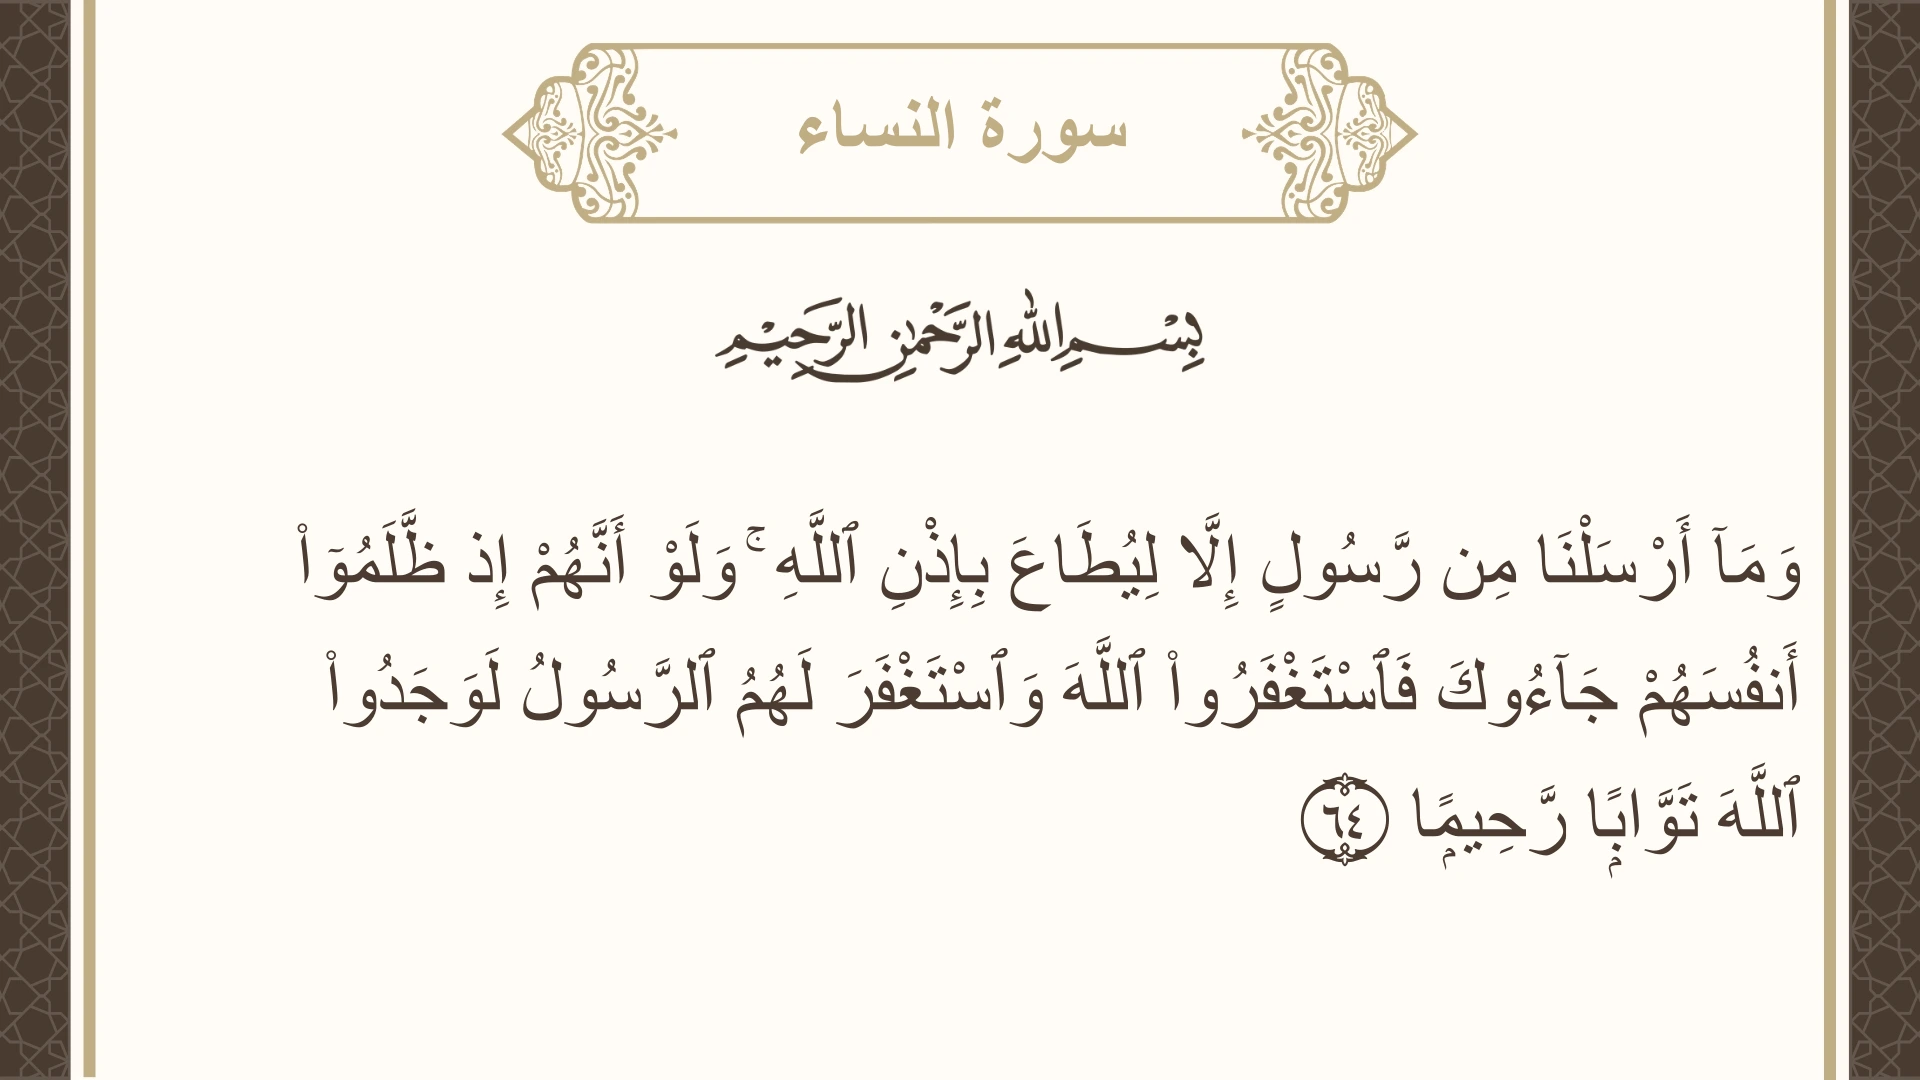 سورة النساء
بِسْمِ اللهِ الرَّحْمٰنِ الرَّحِيْمِ
وَمَآ أَرْسَلْنَا مِن رَّسُولٍ إِلَّا لِيُطَاعَ بِإِذْنِ ٱللَّهِ ۚ وَلَوْ أَنَّهُمْ إِذ ظَّلَمُوٓا۟
أَنفُسَهُمْ جَآءُوكَ فَٱسْتَغْفَرُوا۟ ٱللَّهَ وَٱسْتَغْفَرَ لَهُمُ ٱلرَّسُولُ لَوَجَدُوا۟
ٱللَّهَ تَوَّابًۭا رَّحِيمًۭا ٦٤